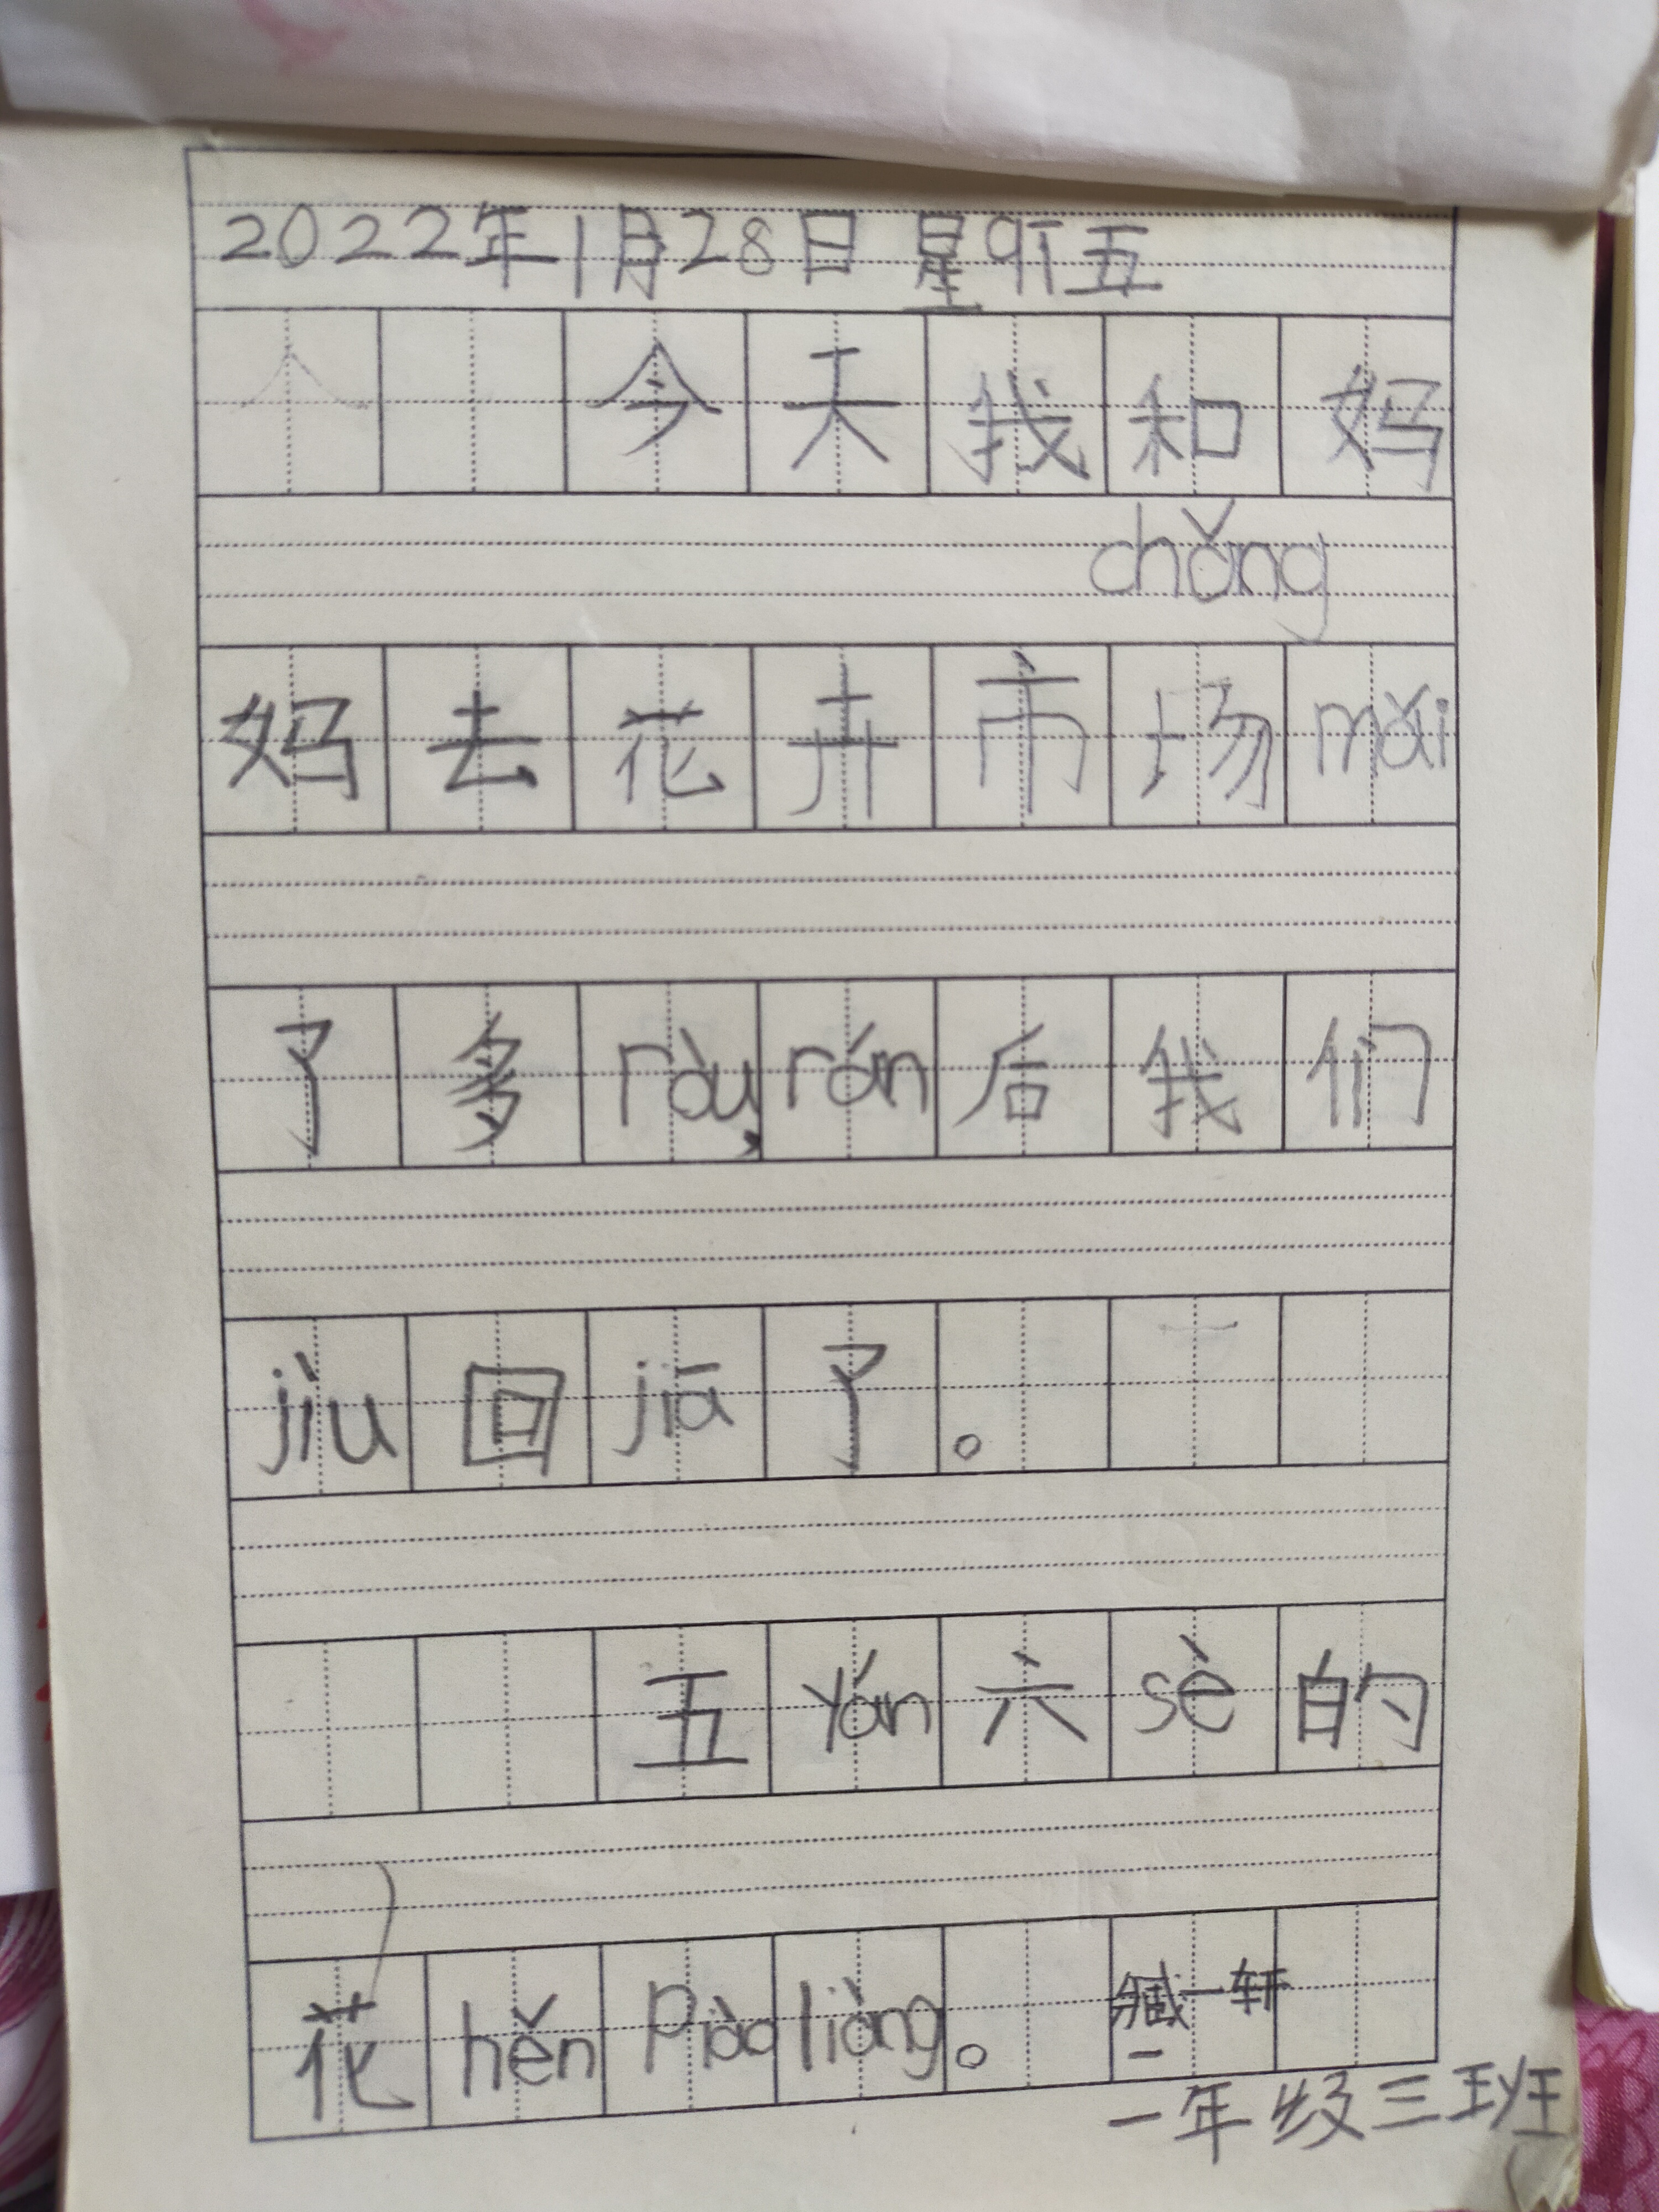 2022年1月28日 星qī五
今天我和妈
chǒng
妈去花卉市场mǎi
了多ròu,rán后我们
jiù回jiā了。
五yán六sè的
花hěn Piàoliàng。 臧一轩
一年级三班